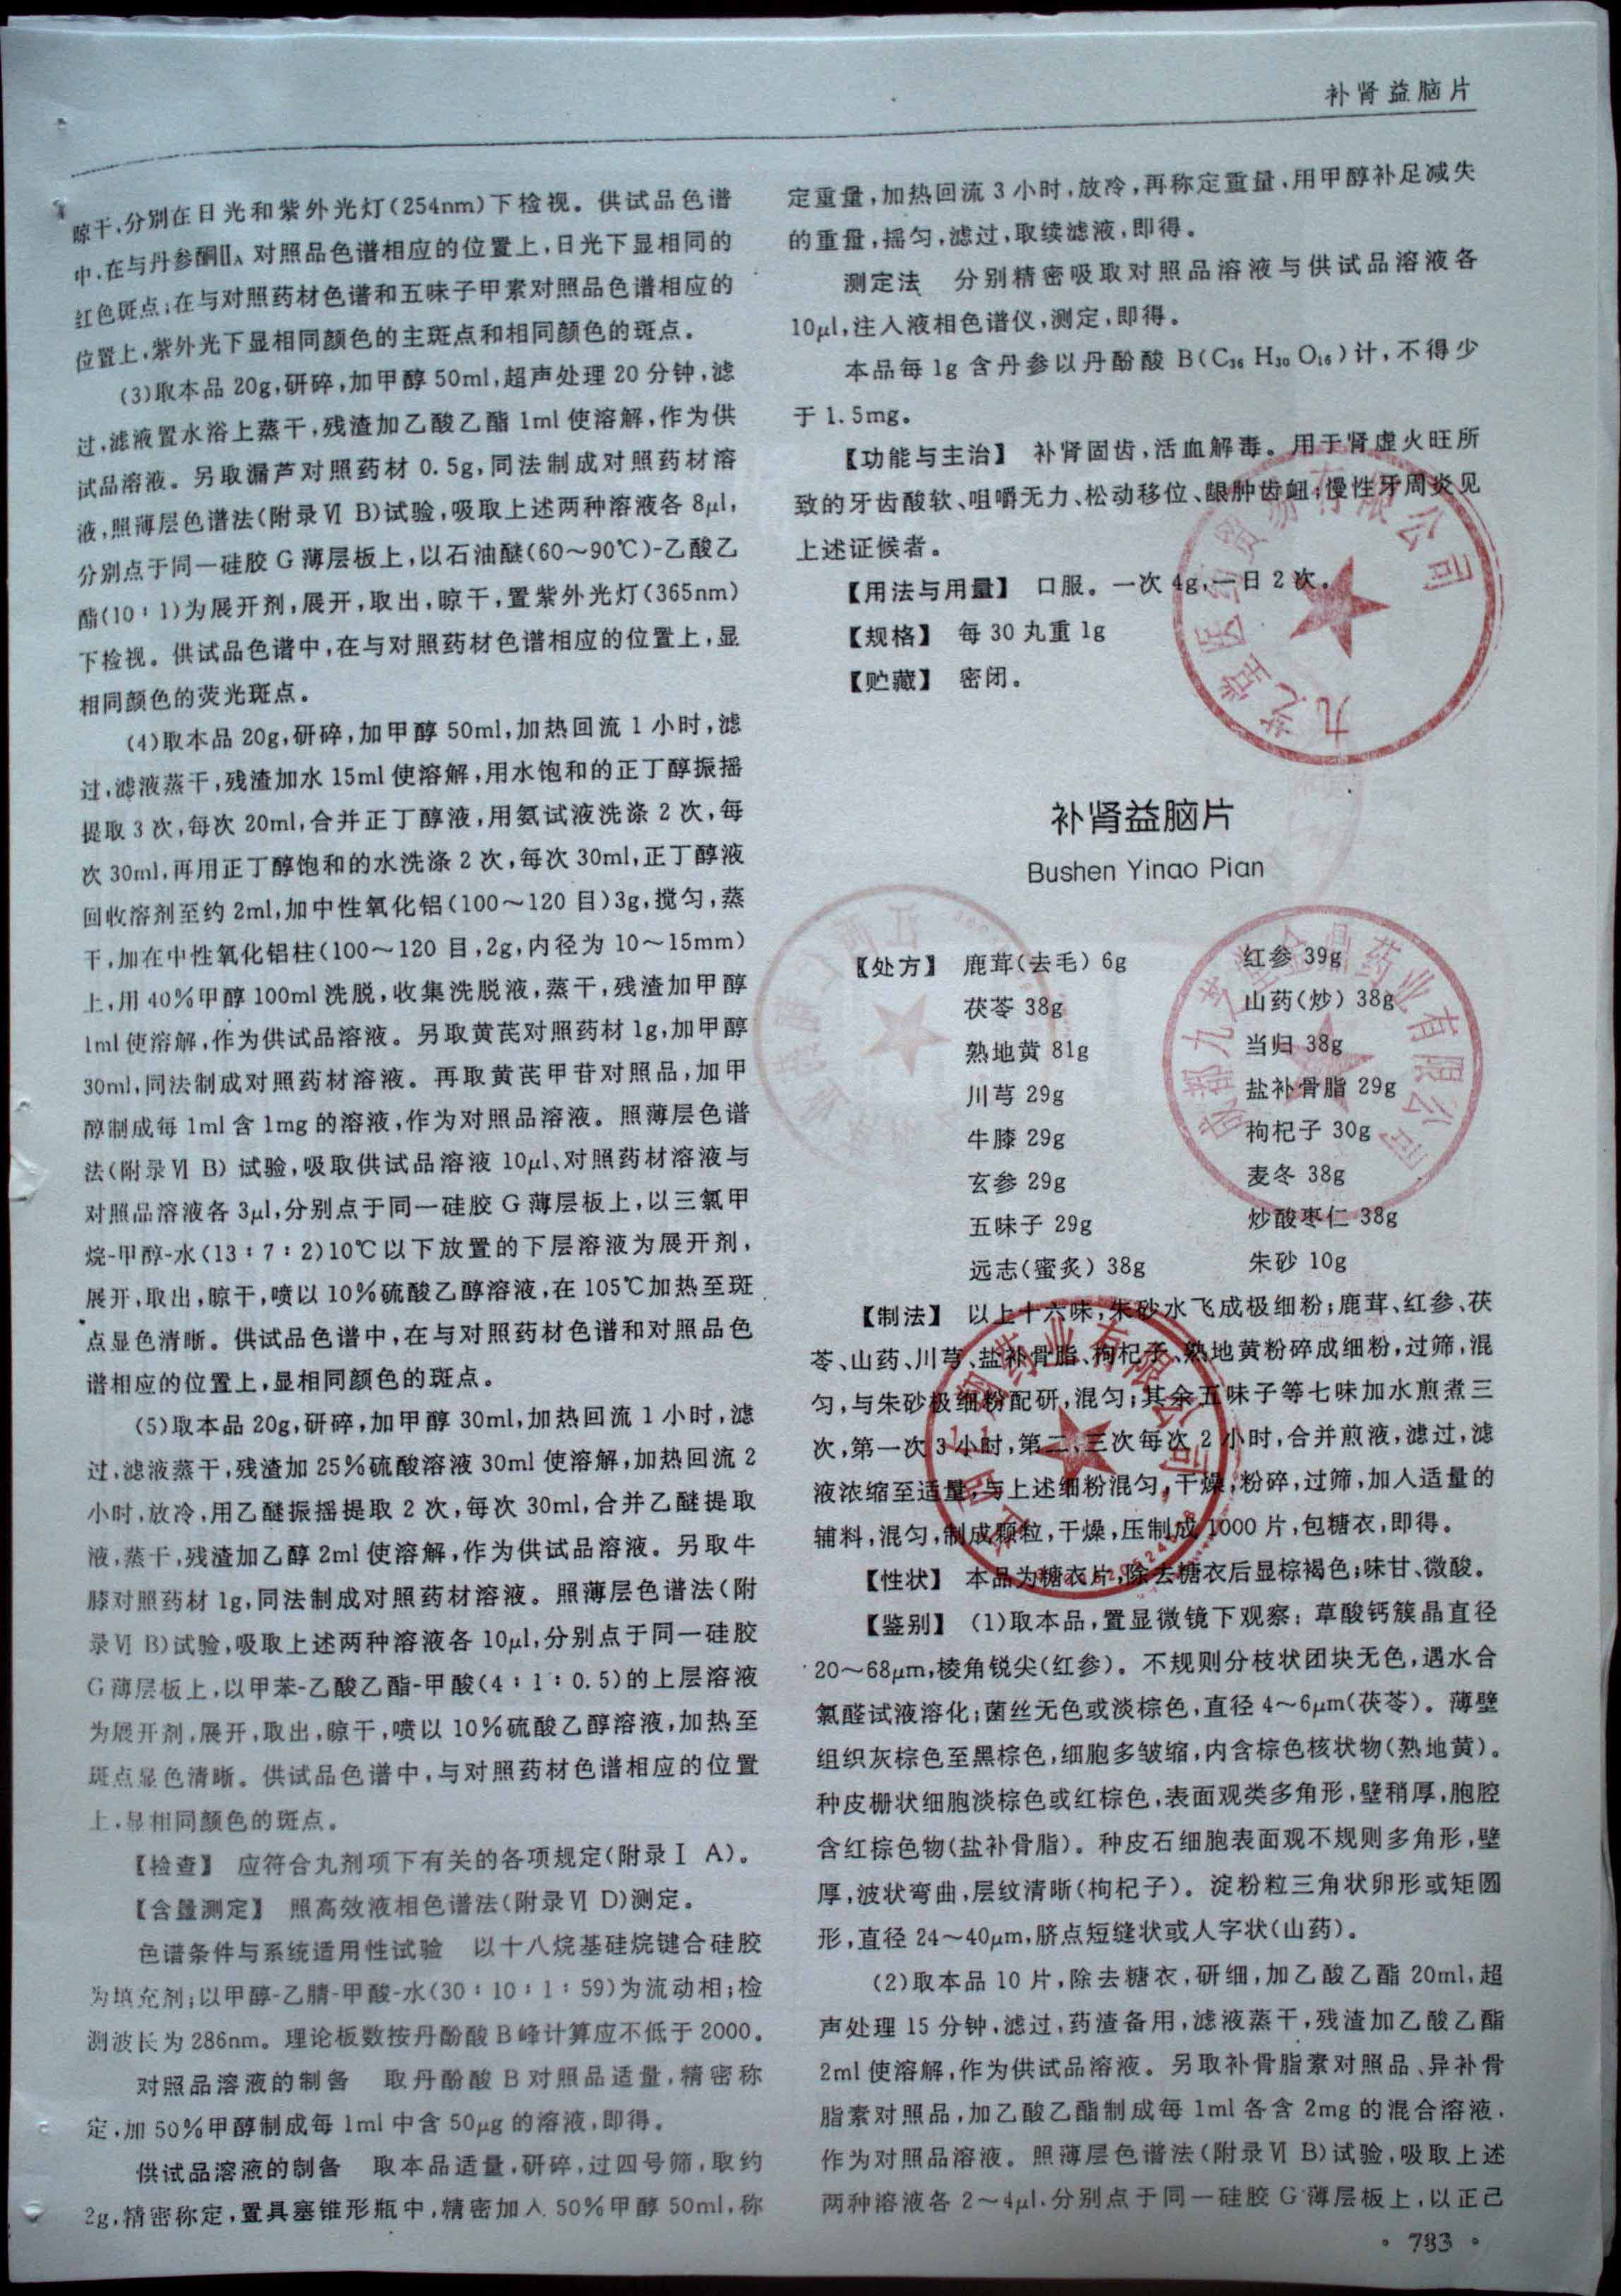 补肾益脑片
晾干,分别在日光和紫外光灯(254nm)下检视。供试品色谱
中,在与丹参酮ⅡA 对照品色谱相应的位置上,日光下显相同的
红色斑点;在与对照药材色谱和五味子甲素对照品色谱相应的
位置上,紫外光下显相同颜色的主斑点和相同颜色的斑点。
(3)取本品 20g,研碎,加甲醇 50ml,超声处理 20 分钟,滤
过,滤液置水浴上蒸干,残渣加乙酸乙酯 1ml 使溶解,作为供
试品溶液。另取漏芦对照药材 0.5g,同法制成对照药材溶
液,照薄层色谱法(附录Ⅵ B)试验,吸取上述两种溶液各 8μl,
分别点于同一硅胶 G 薄层板上,以石油醚(60～90℃)-乙酸乙
酯(10∶1)为展开剂,展开,取出,晾干,置紫外光灯(365nm)
下检视。供试品色谱中,在与对照药材色谱相应的位置上,显
相同颜色的荧光斑点。
(4)取本品 20g,研碎,加甲醇 50ml,加热回流 1 小时,滤
过,滤液蒸干,残渣加水 15ml 使溶解,用水饱和的正丁醇振摇
提取 3 次,每次 20ml,合并正丁醇液,用氨试液洗涤 2 次,每
次 30ml,再用正丁醇饱和的水洗涤 2 次,每次 30ml,正丁醇液
回收溶剂至约 2ml,加中性氧化铝(100～120 目)3g,搅匀,蒸
干,加在中性氧化铝柱(100～120 目,2g,内径为 10～15mm)
上,用 40%甲醇 100ml 洗脱,收集洗脱液,蒸干,残渣加甲醇
1ml 使溶解,作为供试品溶液。另取黄芪对照药材 1g,加甲醇
30ml,同法制成对照药材溶液。再取黄芪甲苷对照品,加甲
醇制成每 1ml 含 1mg 的溶液,作为对照品溶液。照薄层色谱
法(附录Ⅵ B) 试验,吸取供试品溶液 10μl、对照药材溶液与
对照品溶液各 3μl,分别点于同一硅胶 G 薄层板上,以三氯甲
烷-甲醇-水(13∶7∶2)10℃以下放置的下层溶液为展开剂,
展开,取出,晾干,喷以 10%硫酸乙醇溶液,在 105℃加热至斑
点显色清晰。供试品色谱中,在与对照药材色谱和对照品色
谱相应的位置上,显相同颜色的斑点。
(5)取本品 20g,研碎,加甲醇 30ml,加热回流 1 小时,滤
过,滤液蒸干,残渣加 25%硫酸溶液 30ml 使溶解,加热回流 2
小时,放冷,用乙醚振摇提取 2 次,每次 30ml,合并乙醚提取
液,蒸干,残渣加乙醇 2ml 使溶解,作为供试品溶液。另取牛
膝对照药材 1g,同法制成对照药材溶液。照薄层色谱法(附
录Ⅵ B)试验,吸取上述两种溶液各 10μl,分别点于同一硅胶
G 薄层板上,以甲苯-乙酸乙酯-甲酸(4∶1∶0.5)的上层溶液
为展开剂,展开,取出,晾干,喷以 10%硫酸乙醇溶液,加热至
斑点显色清晰。供试品色谱中,与对照药材色谱相应的位置
上,显相同颜色的斑点。
【检查】 应符合丸剂项下有关的各项规定(附录Ⅰ A)。
【含量测定】 照高效液相色谱法(附录Ⅵ D)测定。
色谱条件与系统适用性试验 以十八烷基硅烷键合硅胶
为填充剂;以甲醇-乙腈-甲酸-水(30∶10∶1∶59)为流动相;检
测波长为 286nm。理论板数按丹酚酸 B 峰计算应不低于 2000。
对照品溶液的制备 取丹酚酸 B 对照品适量,精密称
定,加 50%甲醇制成每 1ml 中含 50μg 的溶液,即得。
供试品溶液的制备 取本品适量,研碎,过四号筛,取约
2g,精密称定,置具塞锥形瓶中,精密加入 50%甲醇 50ml,称
定重量,加热回流 3 小时,放冷,再称定重量,用甲醇补足减失
的重量,摇匀,滤过,取续滤液,即得。
测定法 分别精密吸取对照品溶液与供试品溶液各
10μl,注入液相色谱仪,测定,即得。
本品每 1g 含丹参以丹酚酸 B(C36 H30 O16)计,不得少
于 1.5mg。
【功能与主治】 补肾固齿,活血解毒。用于肾虚火旺所
致的牙齿酸软、咀嚼无力、松动移位、龈肿齿衄;慢性牙周炎见
上述证候者。
【用法与用量】 口服。一次 4g,一日 2 次。
【规格】 每 30 丸重 1g
【贮藏】 密闭。
九芝堂医药贸易有限公司
补肾益脑片
Bushen Yinao Pian
【处方】 鹿茸(去毛) 6g 红参 39g
茯苓 38g 山药(炒) 38g
熟地黄 81g 当归 38g
川芎 29g 盐补骨脂 29g
牛膝 29g 枸杞子 30g
玄参 29g 麦冬 38g
五味子 29g 炒酸枣仁 38g
远志(蜜炙) 38g 朱砂 10g
成都九芝堂金鼎药业有限公司
【制法】 以上十六味,朱砂水飞成极细粉;鹿茸、红参、茯
苓、山药、川芎、盐补骨脂、枸杞子、熟地黄粉碎成细粉,过筛,混
匀,与朱砂极细粉配研,混匀;其余五味子等七味加水煎煮三
次,第一次 3 小时,第二、三次每次 2 小时,合并煎液,滤过,滤
液浓缩至适量,与上述细粉混匀,干燥,粉碎,过筛,加入适量的
辅料,混匀,制成颗粒,干燥,压制成 1000 片,包糖衣,即得。
【性状】 本品为糖衣片,除去糖衣后显棕褐色;味甘、微酸。
【鉴别】 (1)取本品,置显微镜下观察:草酸钙簇晶直径
20～68μm,棱角锐尖(红参)。不规则分枝状团块无色,遇水合
氯醛试液溶化;菌丝无色或淡棕色,直径 4～6μm(茯苓)。薄壁
组织灰棕色至黑棕色,细胞多皱缩,内含棕色核状物(熟地黄)。
种皮栅状细胞淡棕色或红棕色,表面观类多角形,壁稍厚,胞腔
含红棕色物(盐补骨脂)。种皮石细胞表面观不规则多角形,壁
厚,波状弯曲,层纹清晰(枸杞子)。淀粉粒三角状卵形或矩圆
形,直径 24～40μm,脐点短缝状或人字状(山药)。
(2)取本品 10 片,除去糖衣,研细,加乙酸乙酯 20ml,超
声处理 15 分钟,滤过,药渣备用,滤液蒸干,残渣加乙酸乙酯
2ml 使溶解,作为供试品溶液。另取补骨脂素对照品、异补骨
脂素对照品,加乙酸乙酯制成每 1ml 各含 2mg 的混合溶液,
作为对照品溶液。照薄层色谱法(附录Ⅵ B)试验,吸取上述
两种溶液各 2～4μl,分别点于同一硅胶 G 薄层板上,以正己
· 783 ·